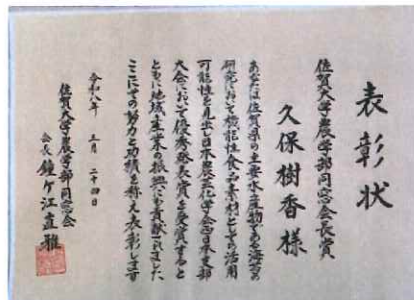 表彰状
佐賀大学農学部同窓会長賞
久保樹香様
あなたは佐賀県の主要水産物である海苔の
研究において機能性食品素材としての活用
可能性を見出し日本農芸化学会西日本支部
大会において優秀発表賞を受賞すると
ともに地域産業の振興にも貢献されました
ここにその努力と功績を称え表彰します
令和八年 三月 二十四日
佐賀大学農学部同窓会
会長 鐘ヶ江直雅